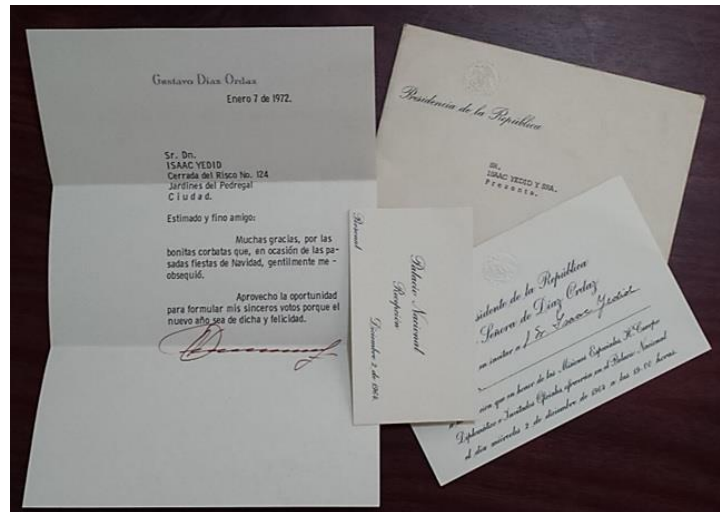 Gustavo Díaz Ordaz
Enero 7 de 1972.
Sr. Dn.
ISAAC YEDID
Cerrada del Risco No. 124
Jardines del Pedregal
C i u d a d.
Estimado y fino amigo:
Muchas gracias, por las
bonitas corbatas que, en ocasión de las pa-
sadas fiestas de Navidad, gentilmente me -
obsequió.
Aprovecho la oportunidad
para formular mis sinceros votos porque el
nuevo año sea de dicha y felicidad.
Presidencia de la República
SR.
ISAAC YEDID Y SRA.
P r e s e n t e.
Personal
Palacio Nacional
Recepción
Diciembre 2 de 1964.
sidente de la República
Señora de Díaz Ordaz
en invitar a Isaac Yedid
ción que en honor de las Misiones Especiales, H. Cuerpo
Diplomático e Invitados Oficiales, ofrecerán en el Palacio Nacional
el día miércoles 2 de diciembre de 1964 a las horas.